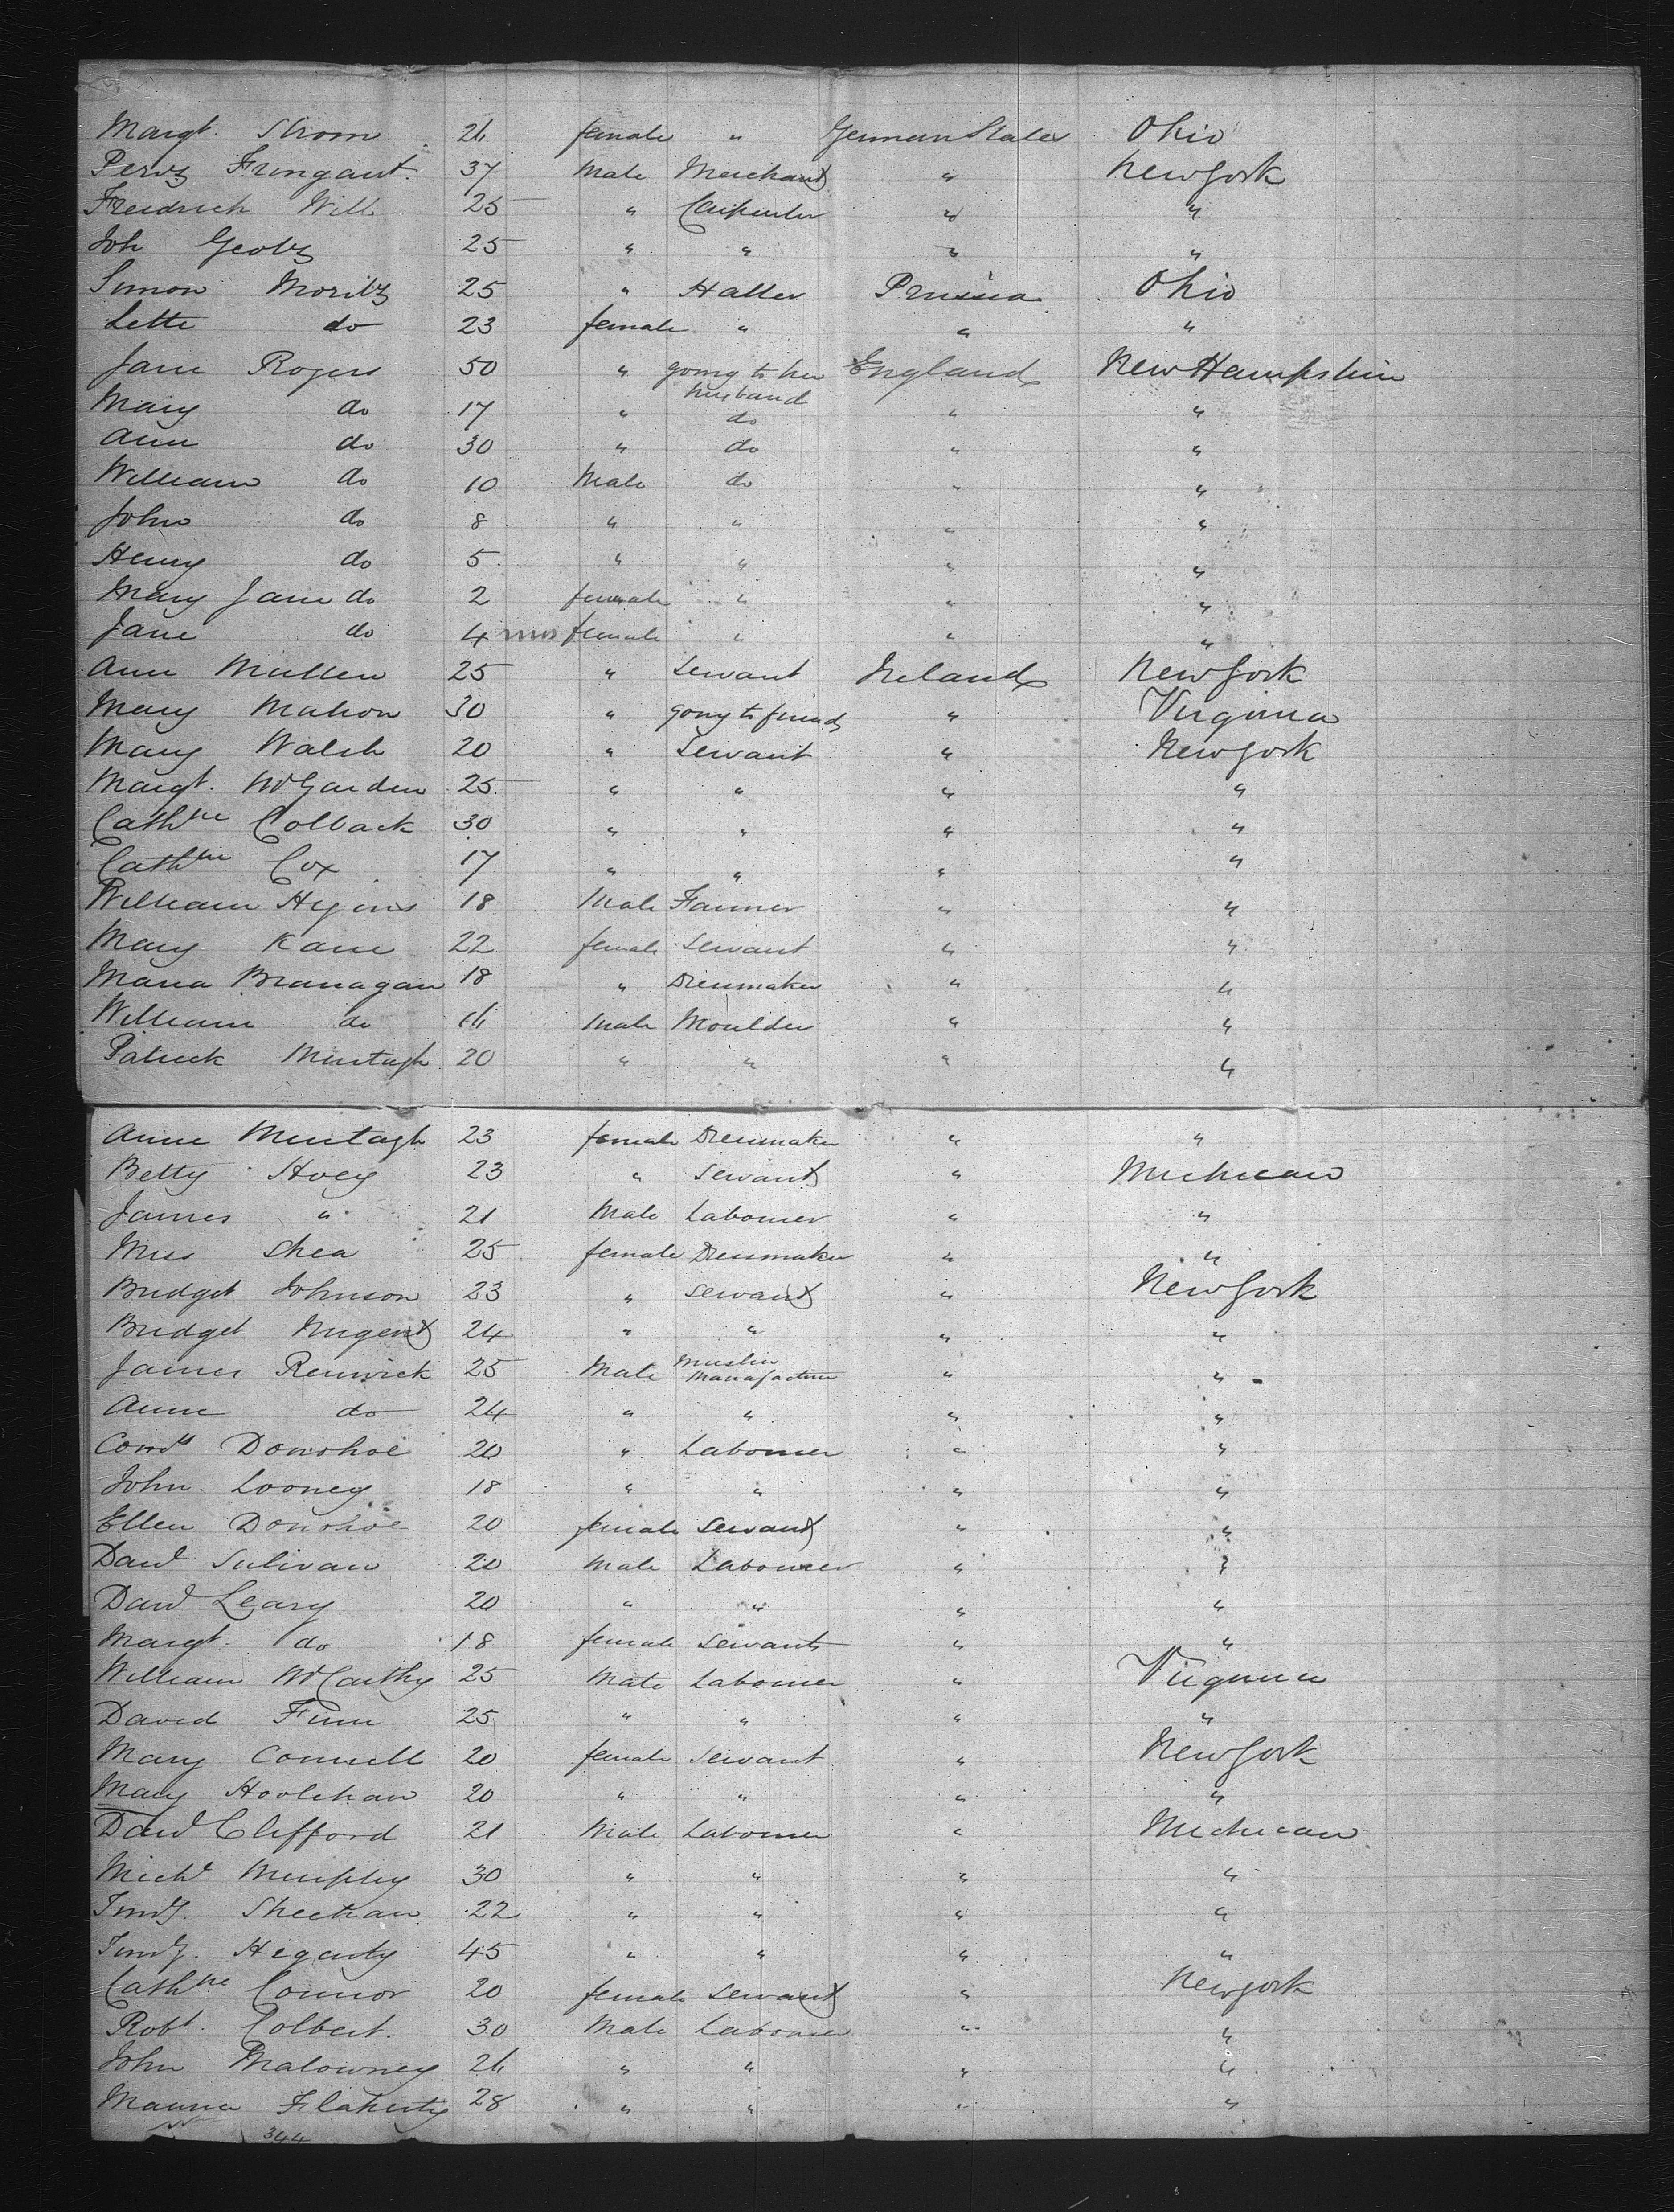 Margt. Strom 26 female " German States Ohio
Pervz Frungant. 37 Male Merchant " New York
Freidrich Will 25 " Carpenter " "
Joh Geobz 25 " " " "
Simon Moritz 25 " Hatter Prussia Ohio
Lette do 23 female " " "
Jane Rogers 50 " going to her husband England New Hampshire
Mary do 17 " do " "
Ann do 30 " do " "
William do 10 Male do " "
John do 8 " " " "
Henry do 5 " " " "
Mary Jane do 2 female " " "
Jane do 4 mos female " " "
Ann Mullen 25 " Servant Ireland New York
Mary Mahon 30 " going to friends " Virginia
Mary Walsh 20 " Servant " New York
Margt. McGarden 25 " " " "
Cathne Colback 30 " " " "
Cathne Cox 17 " " " "
William Hygins 18 Male Farmer " "
Mary Kane 22 female Servant " "
Maria Branagan 18 " Dressmaker " "
William do 16 Male Moulder " "
Patrick Murtagh 20 " " " "
Anne Murtagh 23 female Dressmaker " "
Betty Hoey 23 " Servant " Michican
James " 21 Male Labourer " "
Miss Shea 25 female Dressmaker " "
Bridget Johnson 23 " Servant " New York
Bridget Nugent 24 " " " "
James Renwick 25 Male Muslin Manafacturer " "
Anne do 24 " " " "
Corns Donohoe 20 " Labourer " "
John Looney 18 " " " "
Ellen Donohoe 20 female Servant " "
Danl Sulivan 20 Male Labourer " "
Danl Leary 20 " " " "
Margt. do 18 female Servant " "
William McCarthy 25 Male Labourer " Virginia
David Finn 25 " " " "
Mary Connell 20 female Servant " New York
Mary Hoolehan 20 " " " "
Danl Clifford 21 Male Labourer " Michican
Michl Murphy 30 " " " "
Timoy. Sheehan 22 " " " "
Timoy. Hegarty 45 " " " "
Cathne Connor 20 female Servant " New York
Robt. Colbert. 30 Male Labourer " "
John Malowney 26 " " " "
Maurice Flaherty 28 " " " "
344